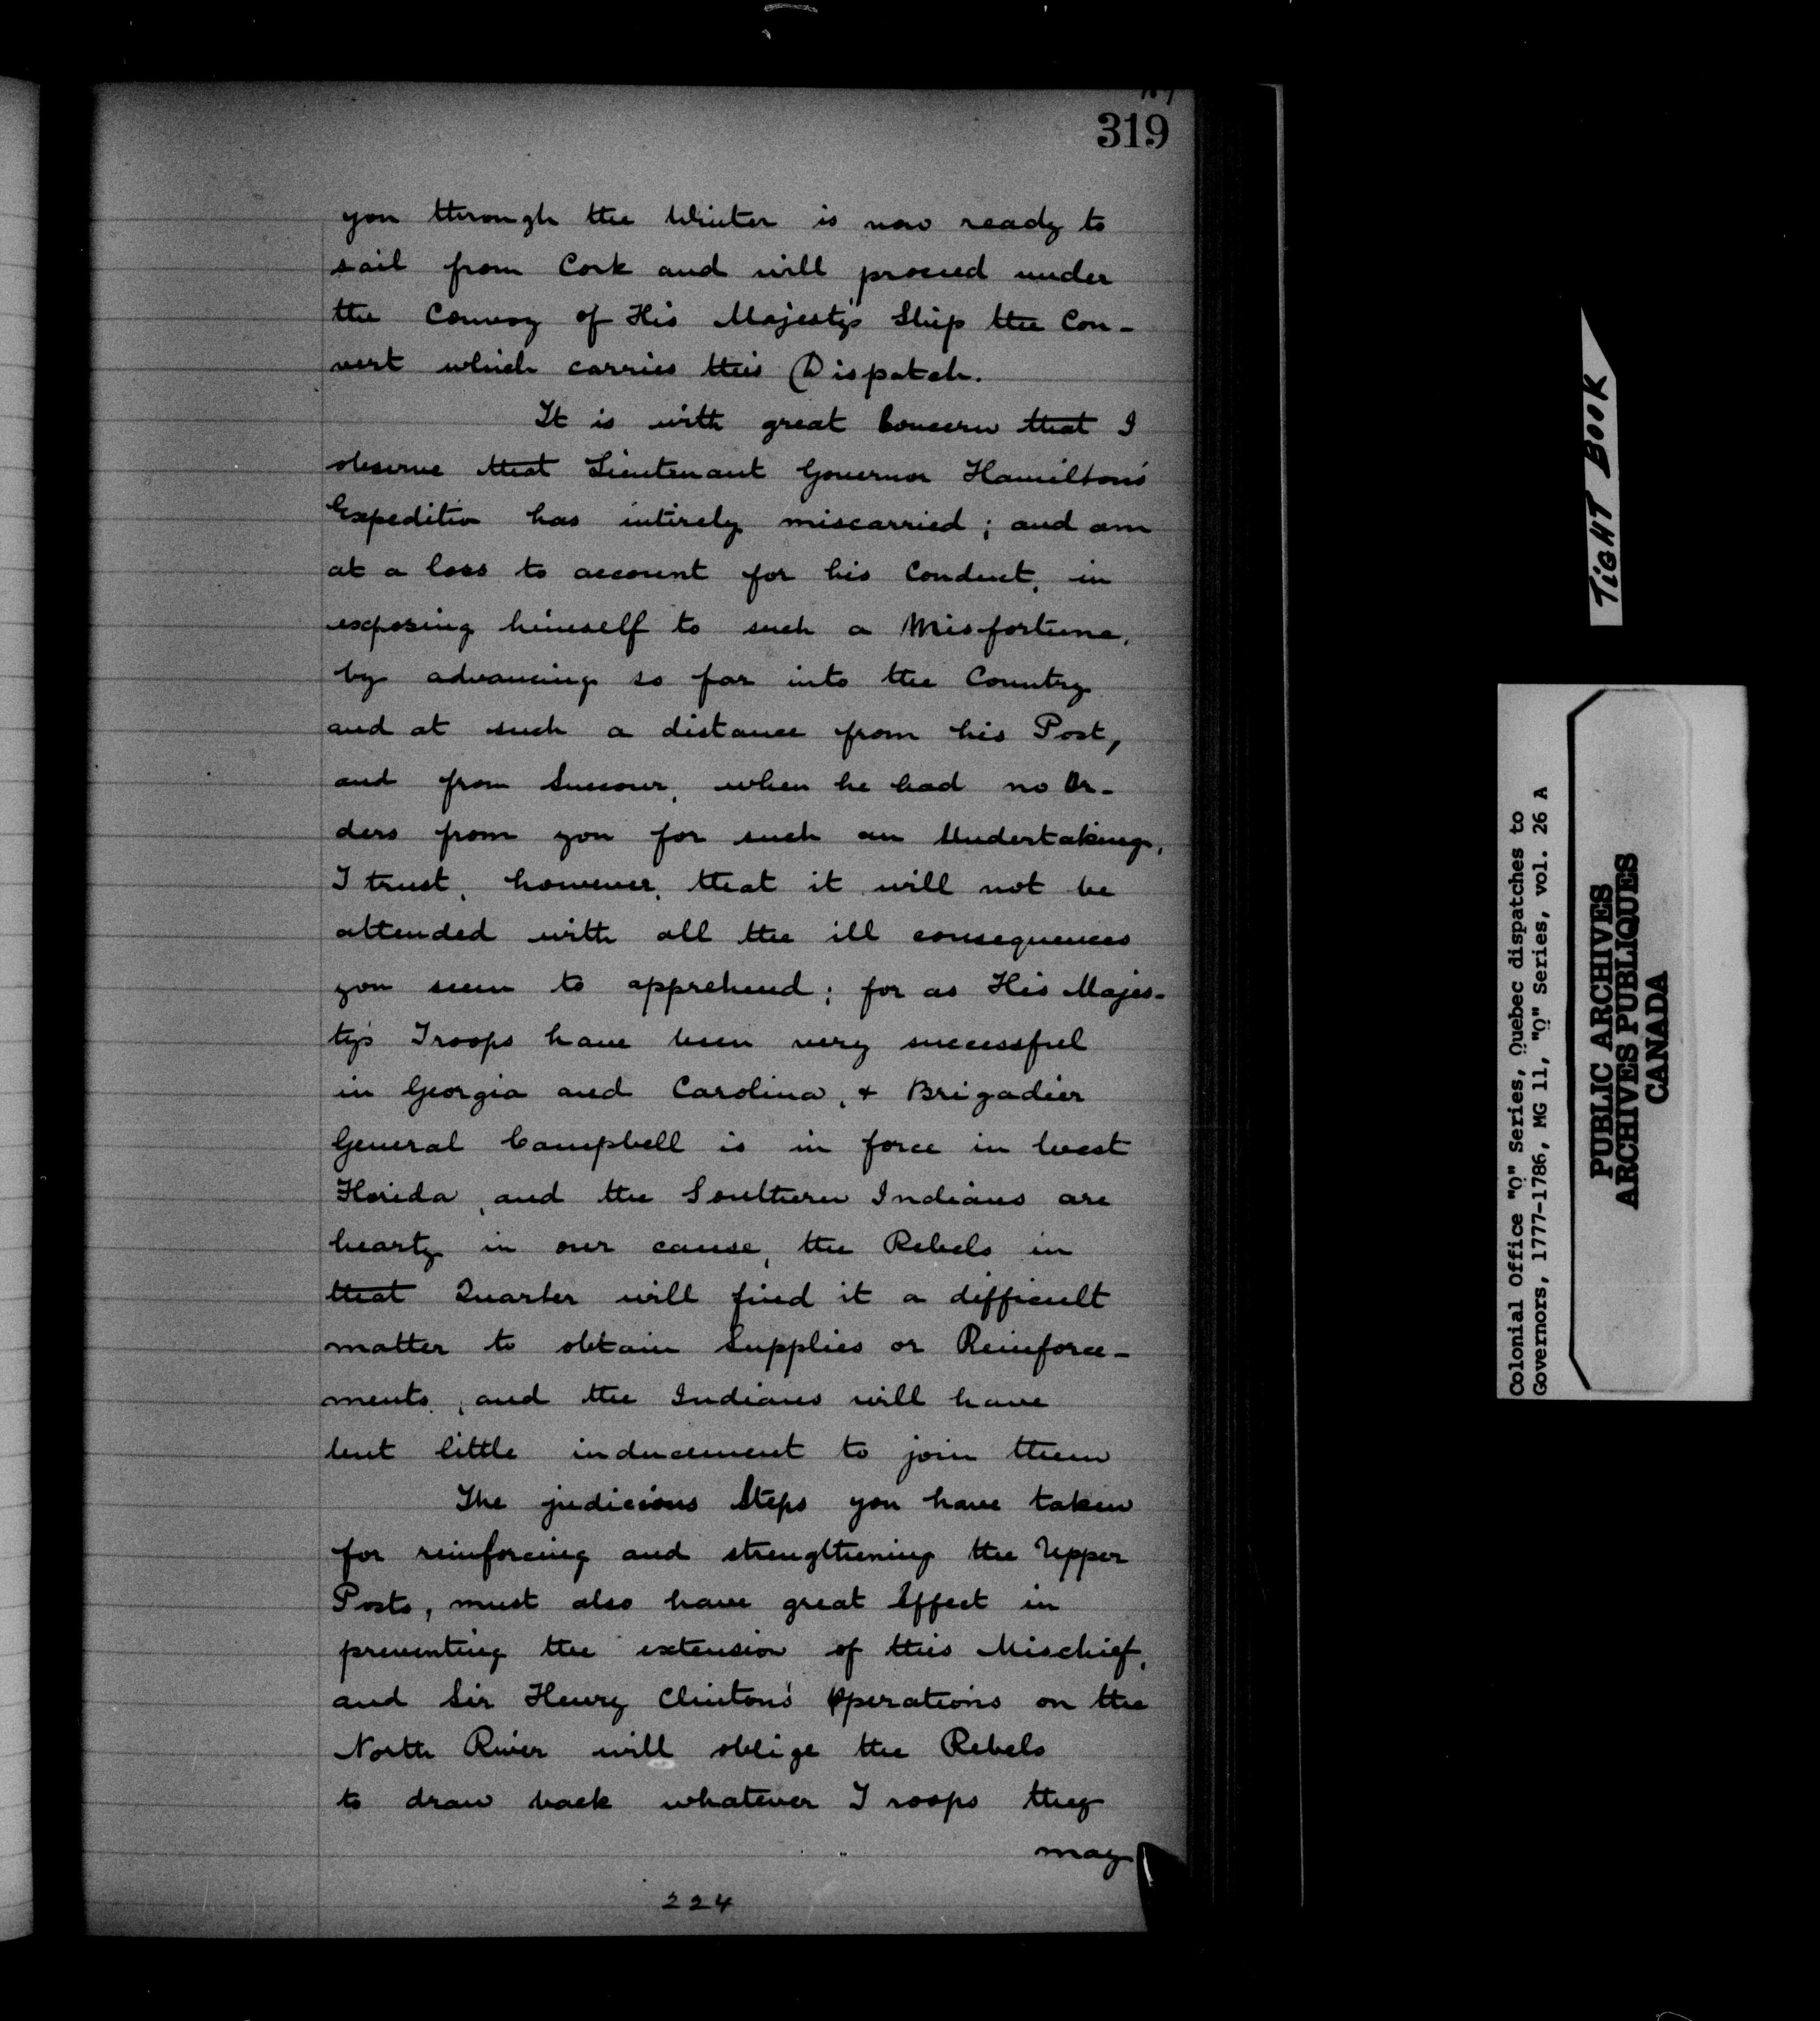 319
you through the Winter is now ready to
sail from Cork and will proceed under
the Convoy of His Majesty's Ship the Con-
vert which carries this Dispatch.
It is with great Concern that I
observe that Lieutenant Governor Hamilton's
Expedition has intirely miscarried; and am
at a loss to account for his Conduct, in
exposing himself to such a Misfortune,
by advancing so far into the Country
and at such a distance from his Post,
and from Succour, when he had no Or-
ders from you for such an Undertaking,
I trust, however, that it will not be
attended with all the ill consequences
you seem to apprehend; for as His Majes-
ty's Troops have been very successful
in Georgia and Carolina, & Brigadier
General Campbell is in force in West
Florida, and the Southern Indians are
hearty in our cause, the Rebels in
that Quarter will find it a difficult
matter to obtain Supplies or Reinforce-
ments, and the Indians will have
but little inducement to join them
The judicious Steps you have taken
for reinforcing and strengthening the Upper
Posts, must also have great Effect in
preventing the extension of this Mischief,
and Sir Henry Clinton's Operations on the
North River will oblige the Rebels
to draw back whatever Troops they
may
224
TIGHT BOOK
Colonial Office "Q" Series, Quebec dispatches to
Governors, 1777-1786, MG 11, "Q" Series, vol. 26 A
PUBLIC ARCHIVES
ARCHIVES PUBLIQUES
CANADA